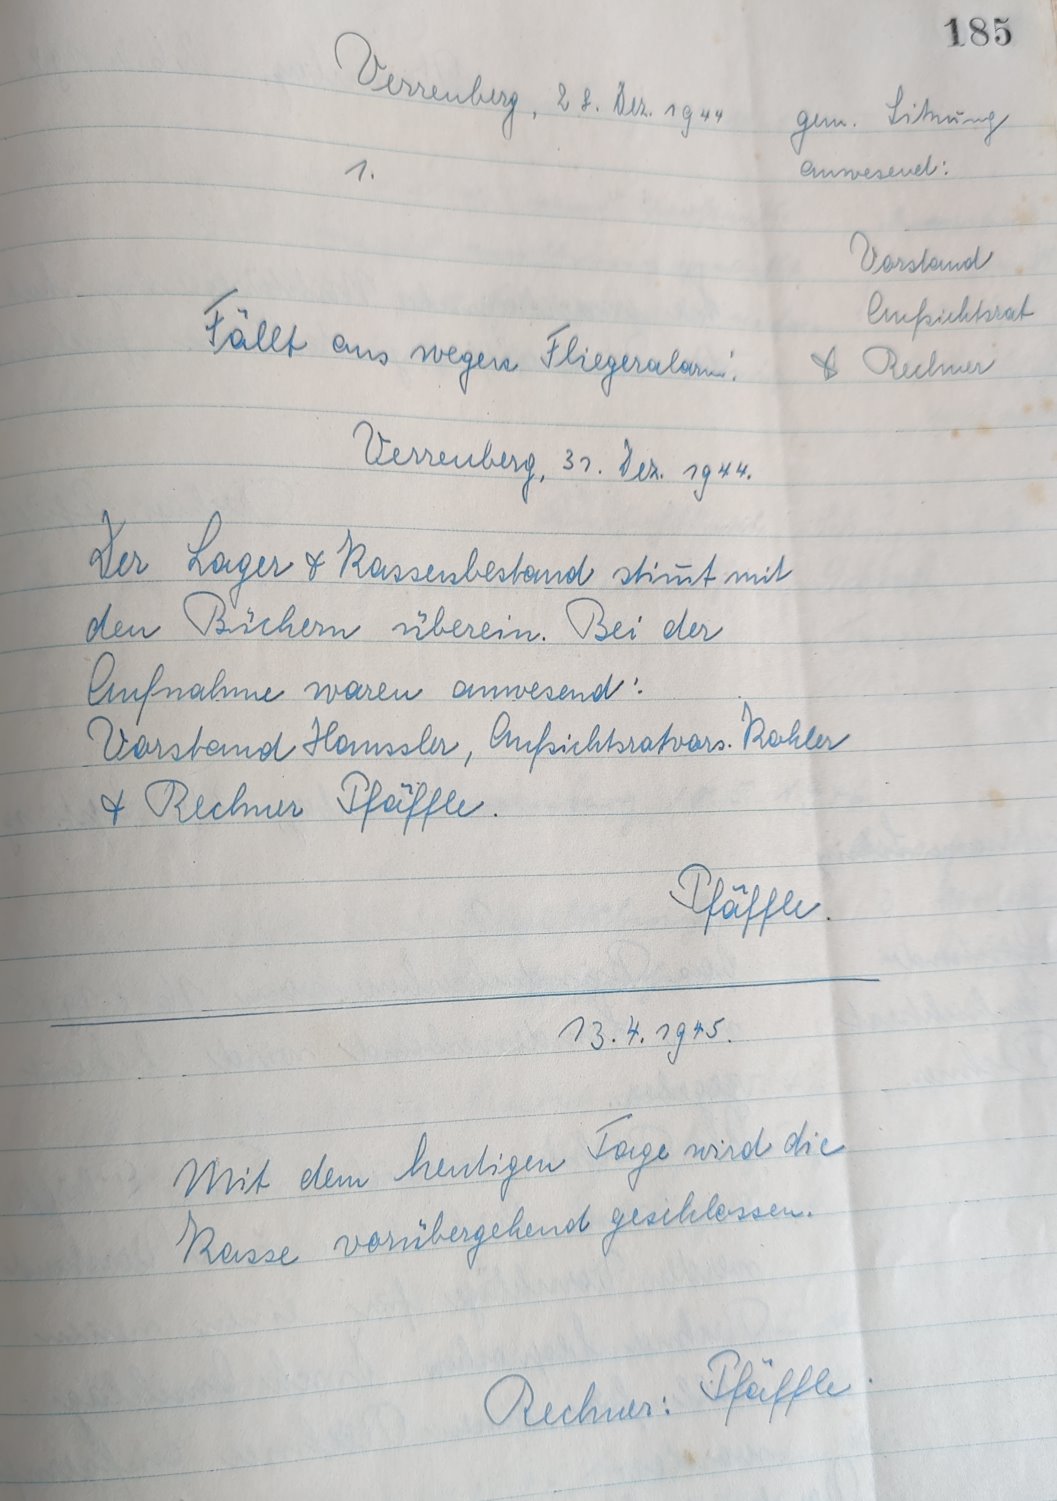 185
Verrenberg, 28. Dez. 1944
gem. Sitzung
anwesend:
1.
Vorstand
Aufsichtsrat
& Rechner
Fällt aus wegen Fliegeralarm!
Verrenberg, 31. Dez. 1944.
Der Lager & Kassenbestand stim̄t mit
den Büchern überein. Bei der
Aufnahme waren anwesend:
Vorstand Haussler, Aufsichtsratvors. Kohler
& Rechner Pfäffle.
Pfäffle.
13.4.1945.
Mit dem heutigen Tage wird die
Kasse vorübergehend geschlossen.
Rechner: Pfäffle.